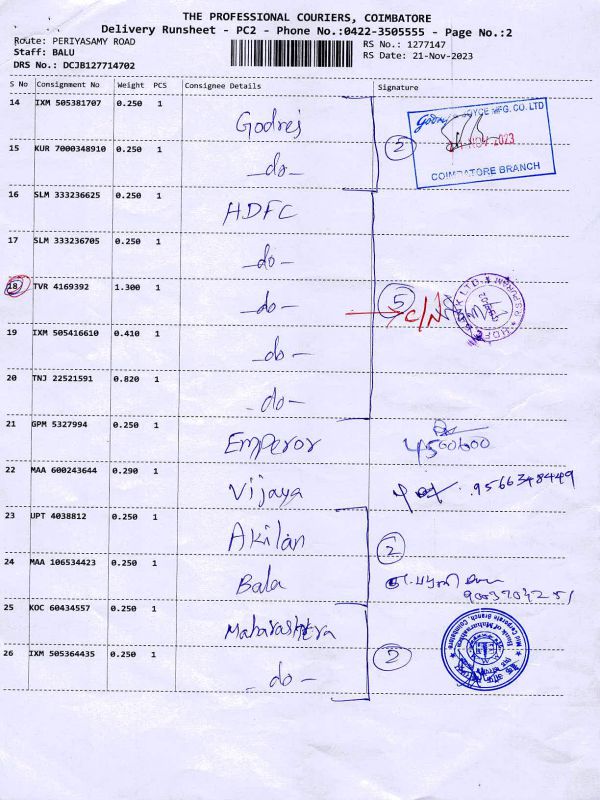 THE PROFESSIONAL COURIERS, COIMBATORE
Delivery Runsheet - PC2 - Phone No.:0422-3505555 - Page No.:2
Route: PERIYASAMY ROAD
RS No.: 1277147
Staff: BALU
RS Date: 21-Nov-2023
DRS No.: DCJB127714702
S No Consignment No Weight PCS Consignee Details Signature
14 IXM 505381707 0.250 1 Godrej
JOYCE MFG. CO. LTD
2023
COIMBATORE BRANCH
15 KUR 7000348910 0.250 1 -do- 2
16 SLM 333236625 0.250 1 HDFC
17 SLM 333236705 0.250 1 -do-
18 TVR 4169392 1.300 1 -do- 5
C/N
19 IXM 505416610 0.410 1 -do-
20 TNJ 22521591 0.820 1 -do-
21 GPM 5327994 0.250 1 Emperor 4500600
22 MAA 600243644 0.290 1 Vijaya 9566348449
23 UPT 4038812 0.250 1 Akilan 2
24 MAA 106534423 0.250 1 Bala
25 KOC 60434557 0.250 1 Maharashtra
Bank of Maharashtra
Mid Corporate Branch, Coimbatore
26 IXM 505364435 0.250 1 -do- 2